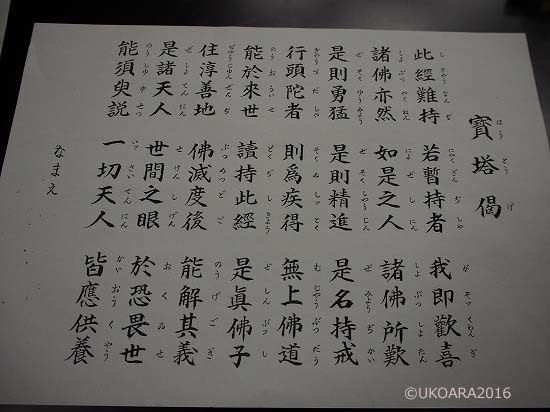 寶塔偈
ほうとうげ
此經難持 若暫持者 我即歡喜
諸佛亦然 如是之人 諸佛所歎
是則勇猛 是則精進 是名持戒
行頭陀者 則爲疾得 無上佛道
能於來世 讀持此經 是眞佛子
住淳善地 佛滅度後 能解其義
是諸天人 世間之眼 於恐畏世
能須臾説 一切天人 皆應供養
なまえ
©UKOARA2016